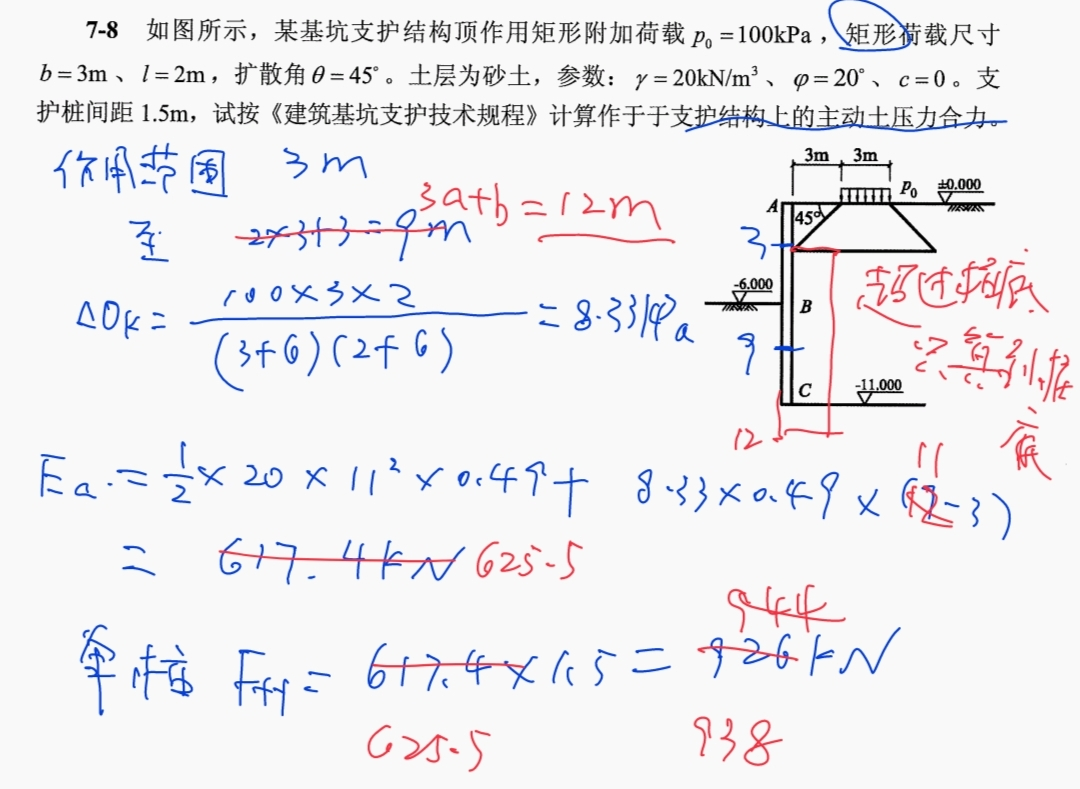 7-8 如图所示，某基坑支护结构顶作用矩形附加荷载 p₀ =100kPa ，矩形荷载尺寸
b = 3m 、 l = 2m ，扩散角 θ = 45° 。土层为砂土，参数： γ = 20kN/m³ 、 φ = 20° 、 c = 0 。支
护桩间距 1.5m，试按《建筑基坑支护技术规程》计算作于于支护结构上的主动土压力合力。
3m 3m
P₀ ±0.000
A 45°
3
-6.000
B
9
C -11.000
12
作用范围 3m
至 2×3+3=9m 3a+b=12m
Δσk = 100×3×2 / (3+6)(2+6) = 8.33kPa
超过桩底
只算到桩
底
Ea = 1/2 × 20 × 11² × 0.49 + 8.33×0.49 × (12-3)
11
= 617.4kN 625.5
944
单桩 = 617.4×1.5 = 926kN
625.5 938